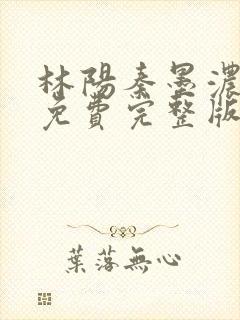 林陽秦墨濃
免費完整版
葉落無心